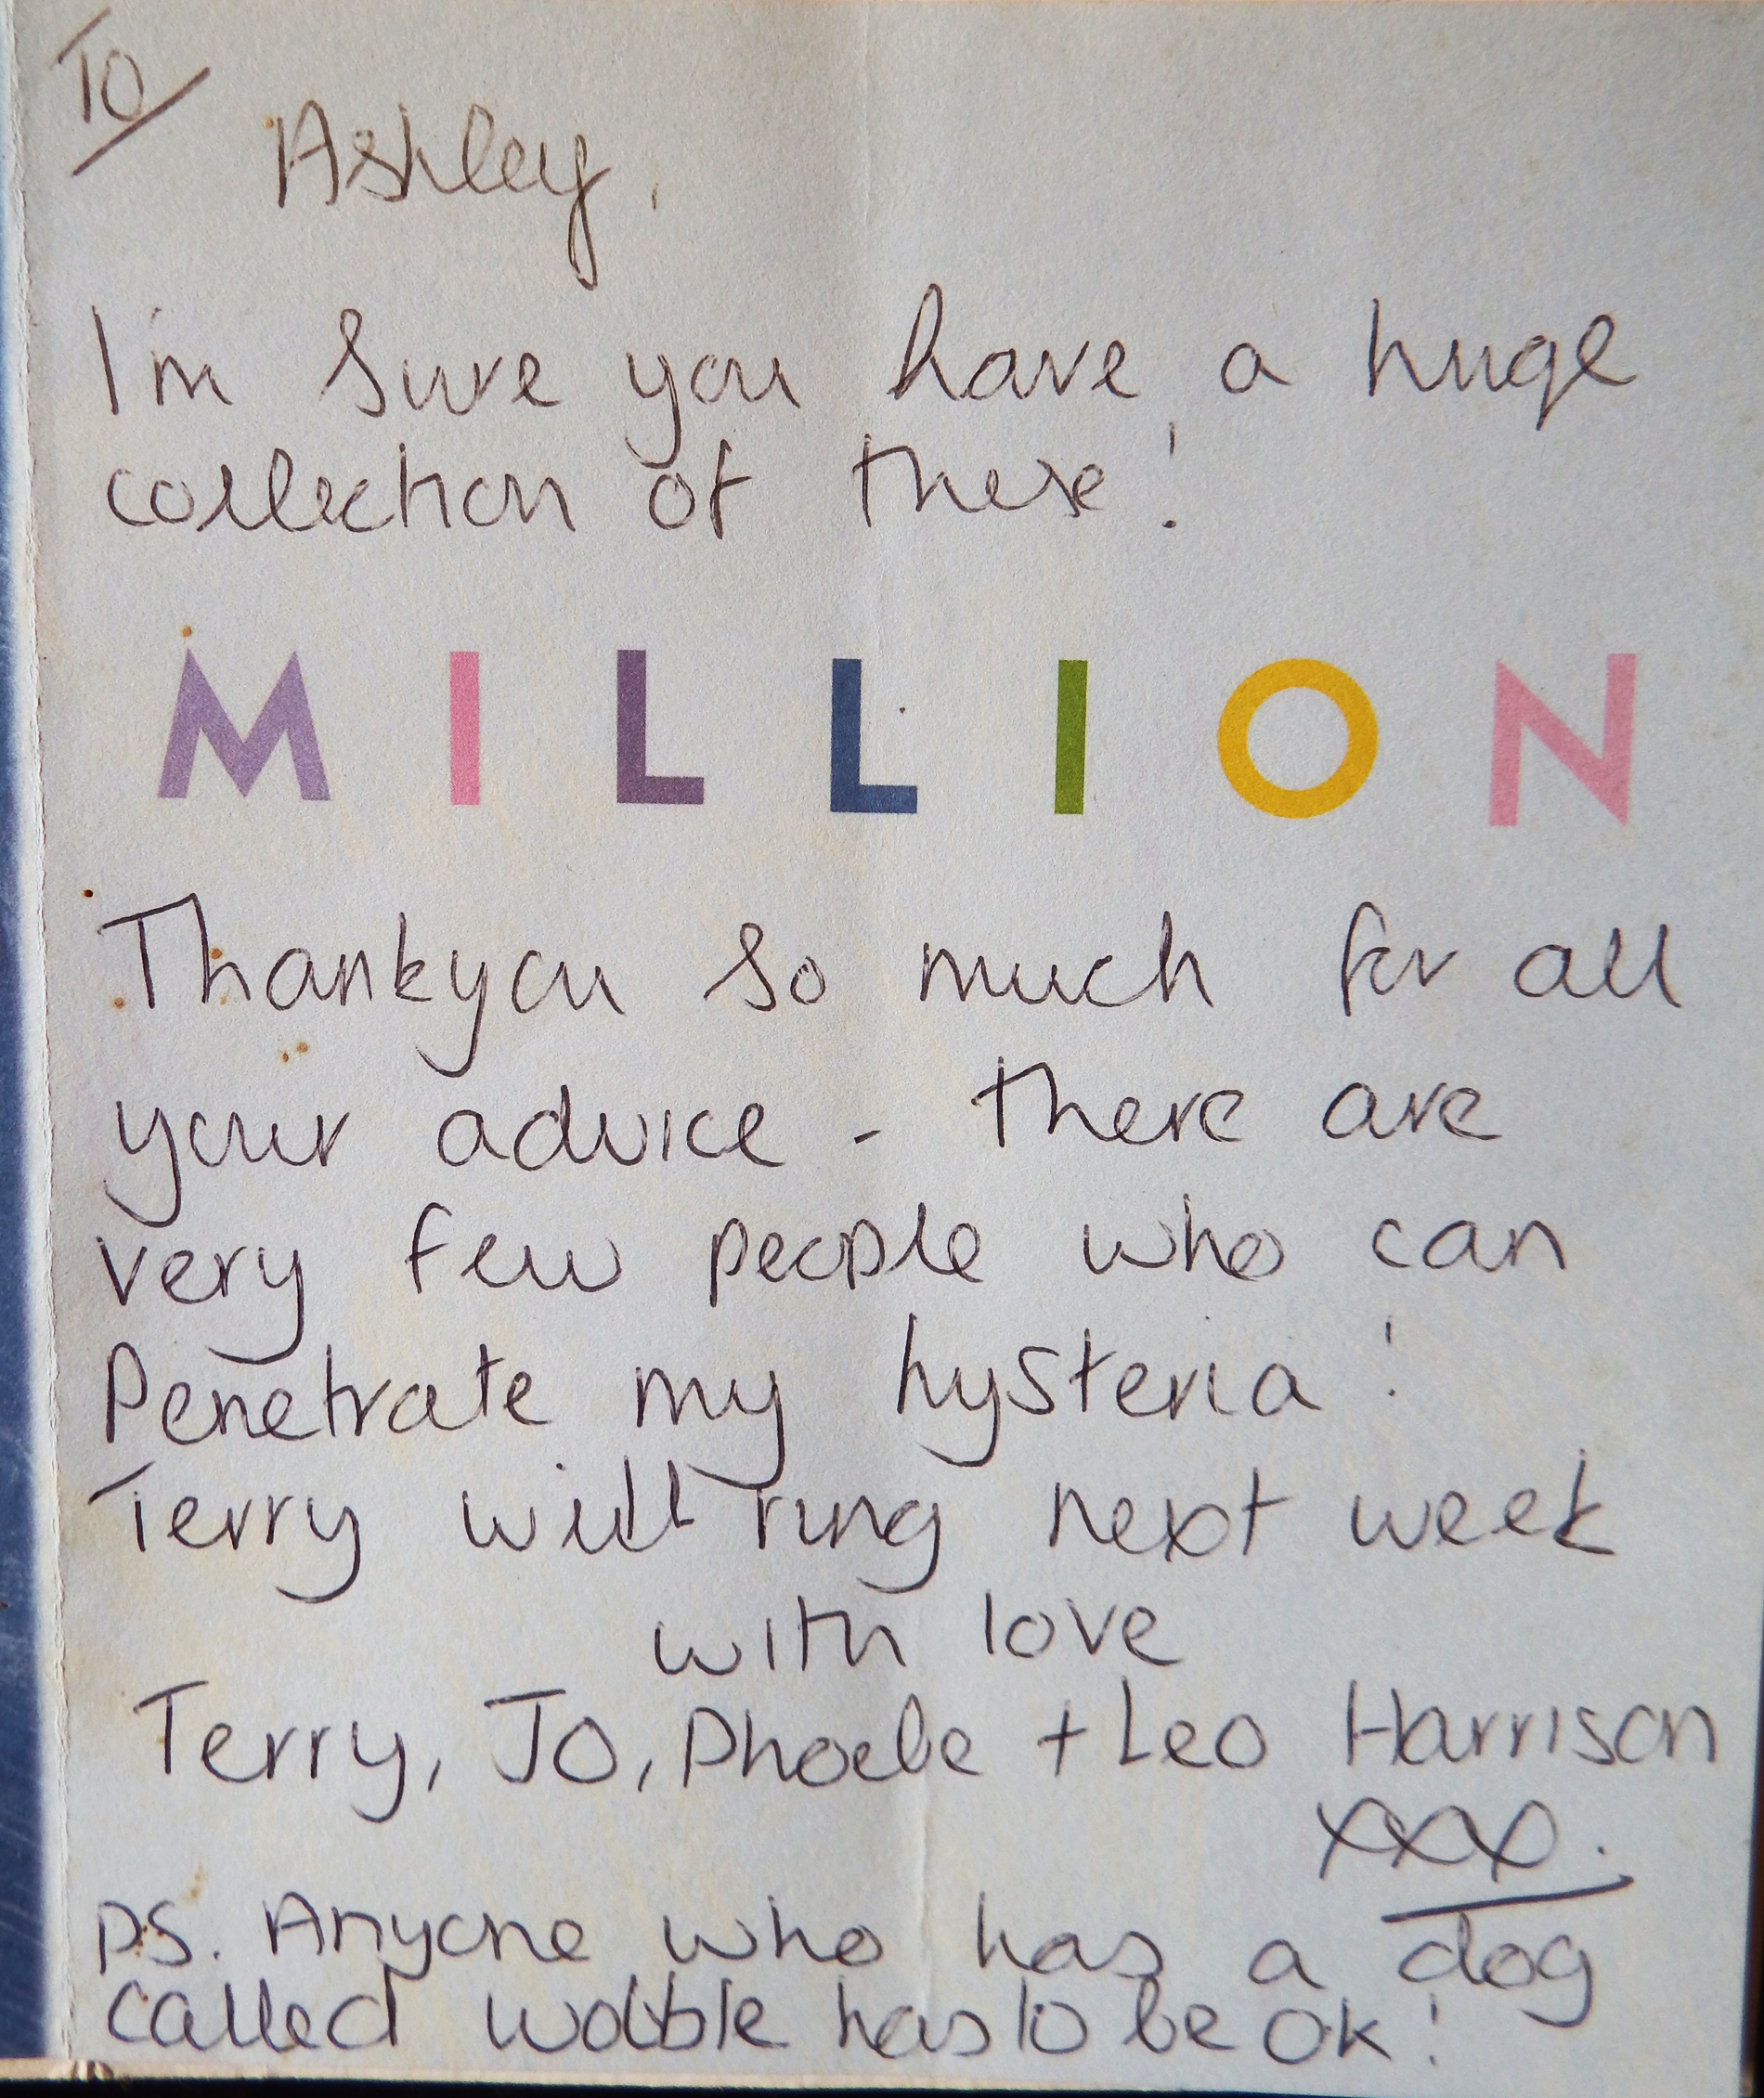 To/
Ashley,
I'm sure you have a huge
collection of these!
MILLION
Thankyou so much for all
your advice - there are
very few people who can
Penetrate my hysteria!
Terry will ring next week
with love
Terry, Jo, Phoebe + Leo Harrison
xxx.
PS. Anyone who has a dog
called wobble has to be ok!